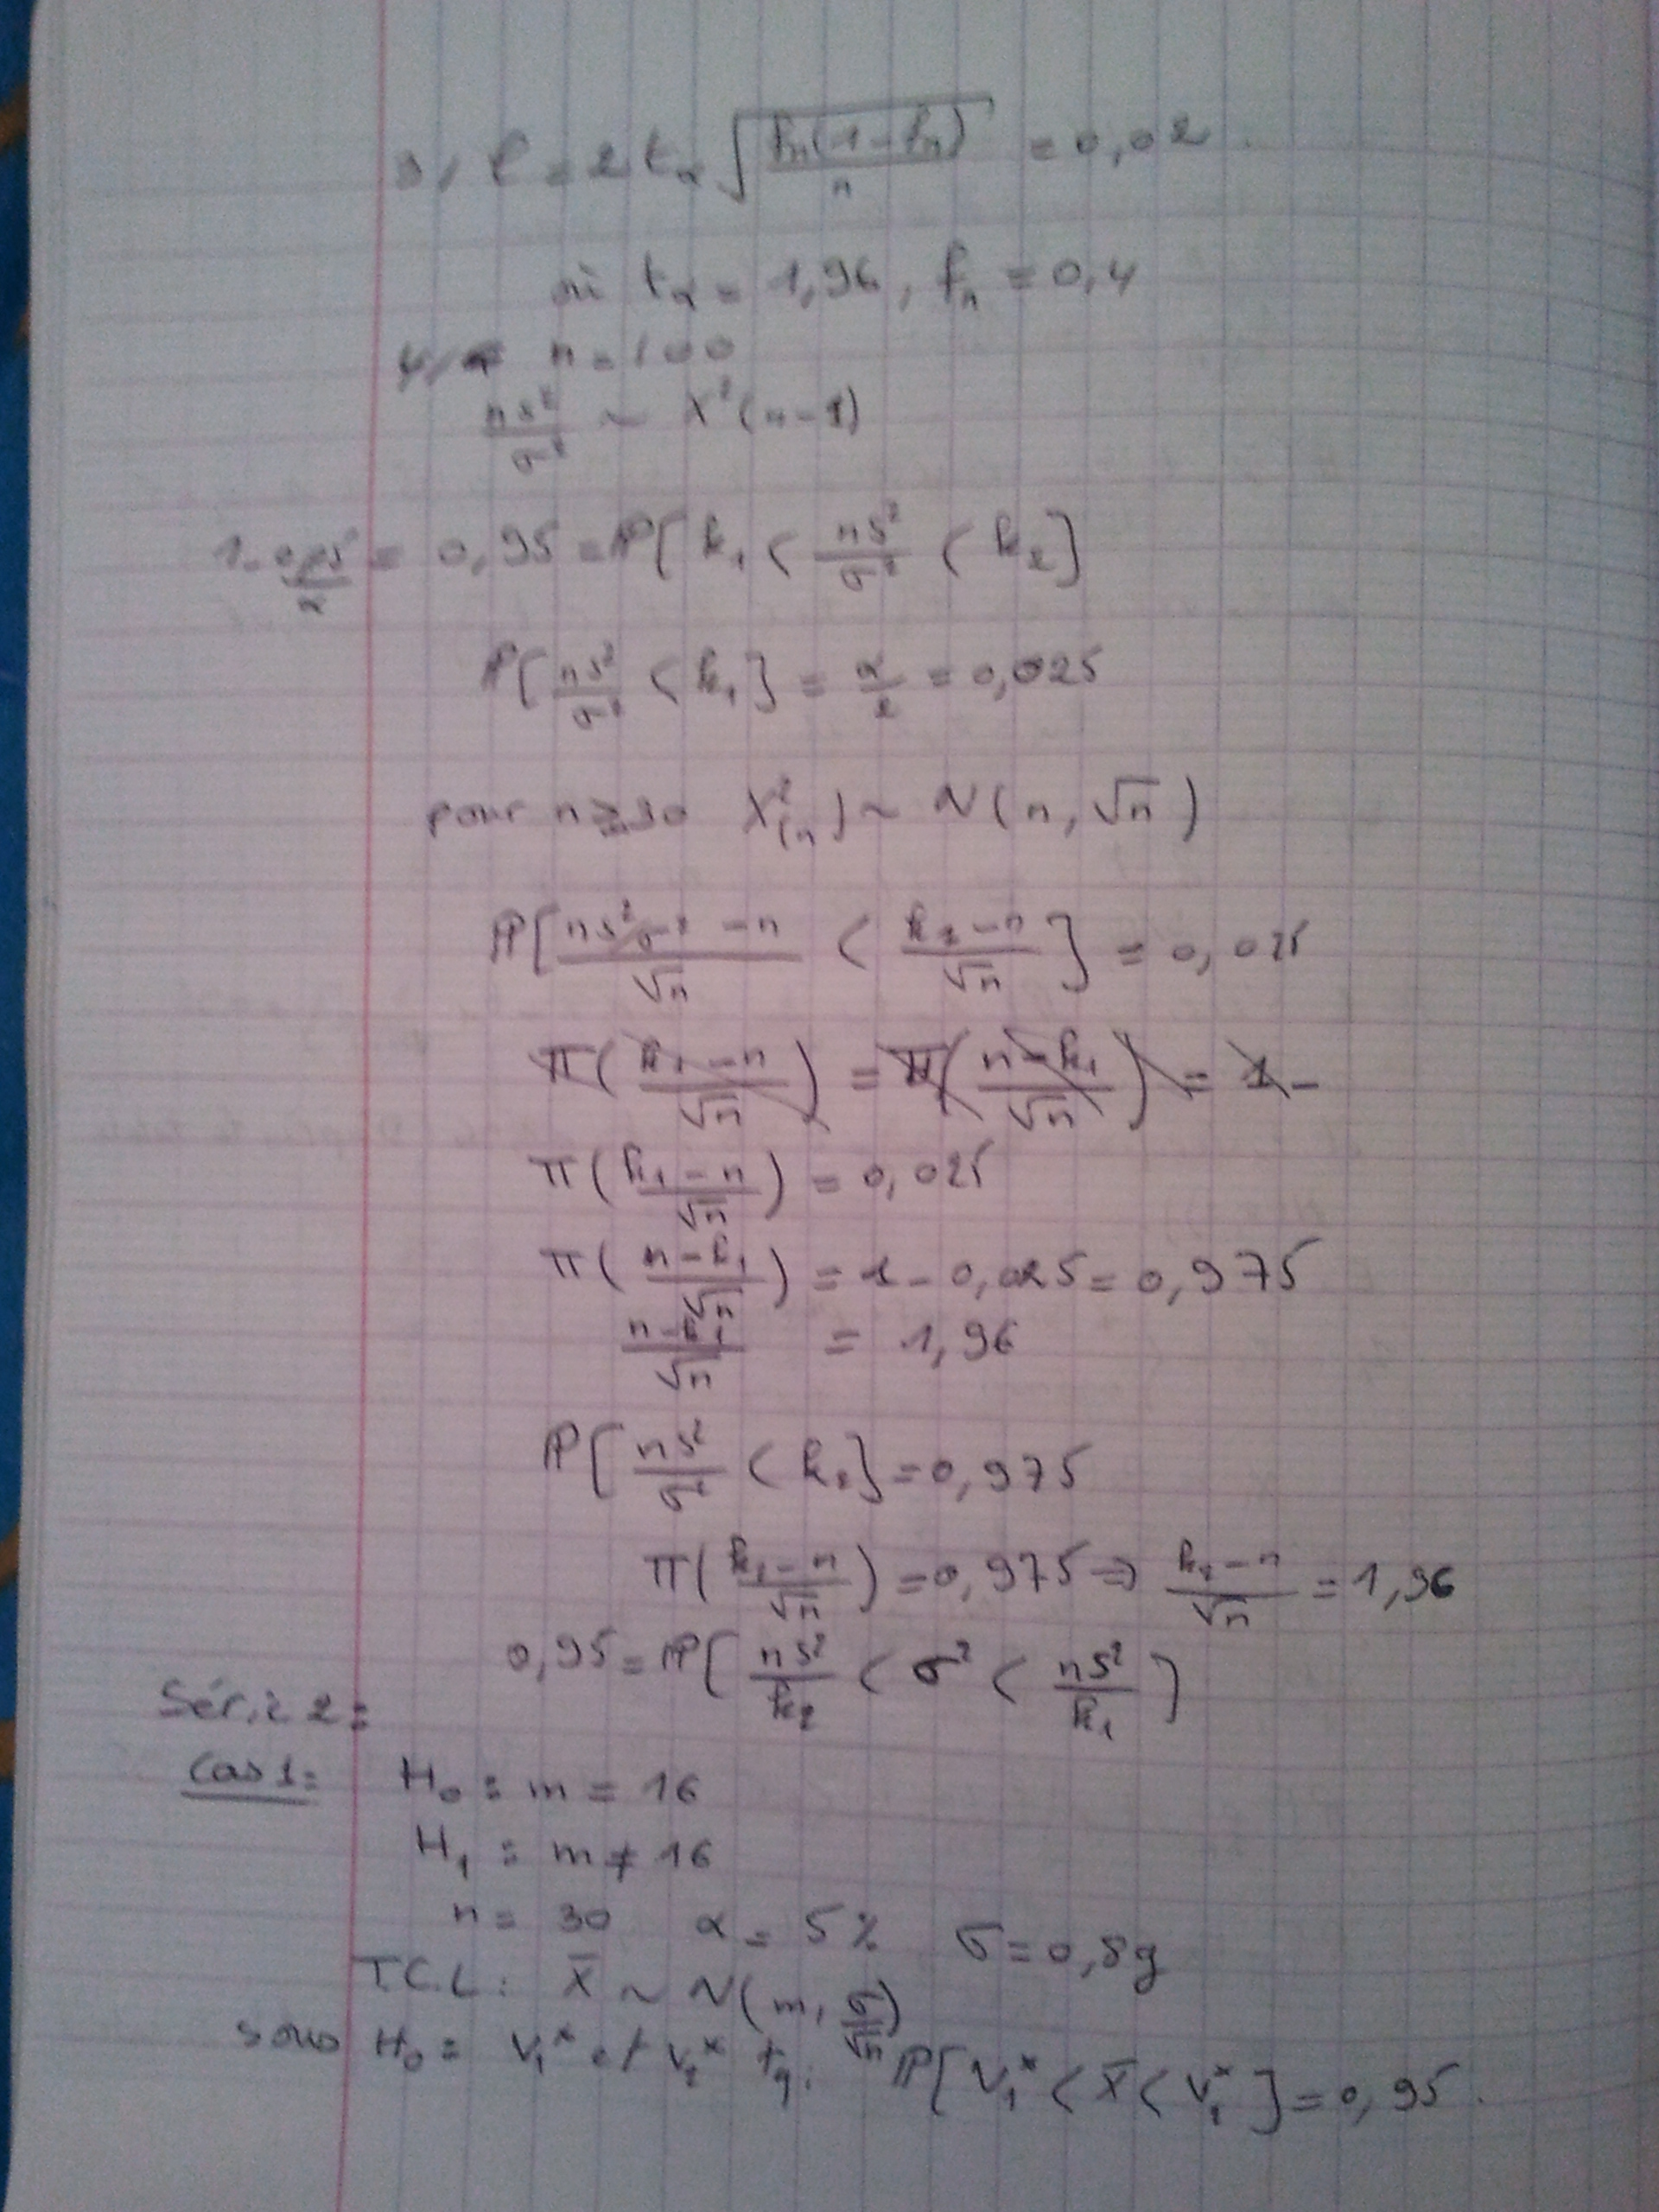 3/ l = 2 tα √(fn(1-fn)/n) = 0,02.
où tα = 1,96, fn = 0,4
4/ n = 100
ns²/σ² ~ χ²(n-1)
1 - 0,05/α = 0,95 = P[k₁ < ns²/σ² < k₂]
P[ns²/σ² < k₁] = α/2 = 0,025
pour n ≥ 30 χ²(n) ~ N(n, √n)
P[(ns²/σ² - n)/√n < (k₁ - n)/√n] = 0,025
Π((k₁ - n)/√n) = Π((n - k₁)/√n) = 1 -
Π((k₁ - n)/√n) = 0,025
Π((n - k₁)/√n) = 1 - 0,025 = 0,975
(n - k₁)/√n = 1,96
P[ns²/σ² < k₂] = 0,975
Π((k₂ - n)/√n) = 0,975 ⇒ (k₂ - n)/√n = 1,96
0,95 = P[ns²/k₂ < σ² < ns²/k₁]
Série 2:
Cas 1: H₀ : m = 16
H₁ : m ≠ 16
n = 30 α = 5% σ = 0,8g
T.C.L: X̄ ~ N(m, σ/√n)
sous H₀ : V₁* et V₂* tq: P[V₁* < X̄ < V₂*] = 0,95.